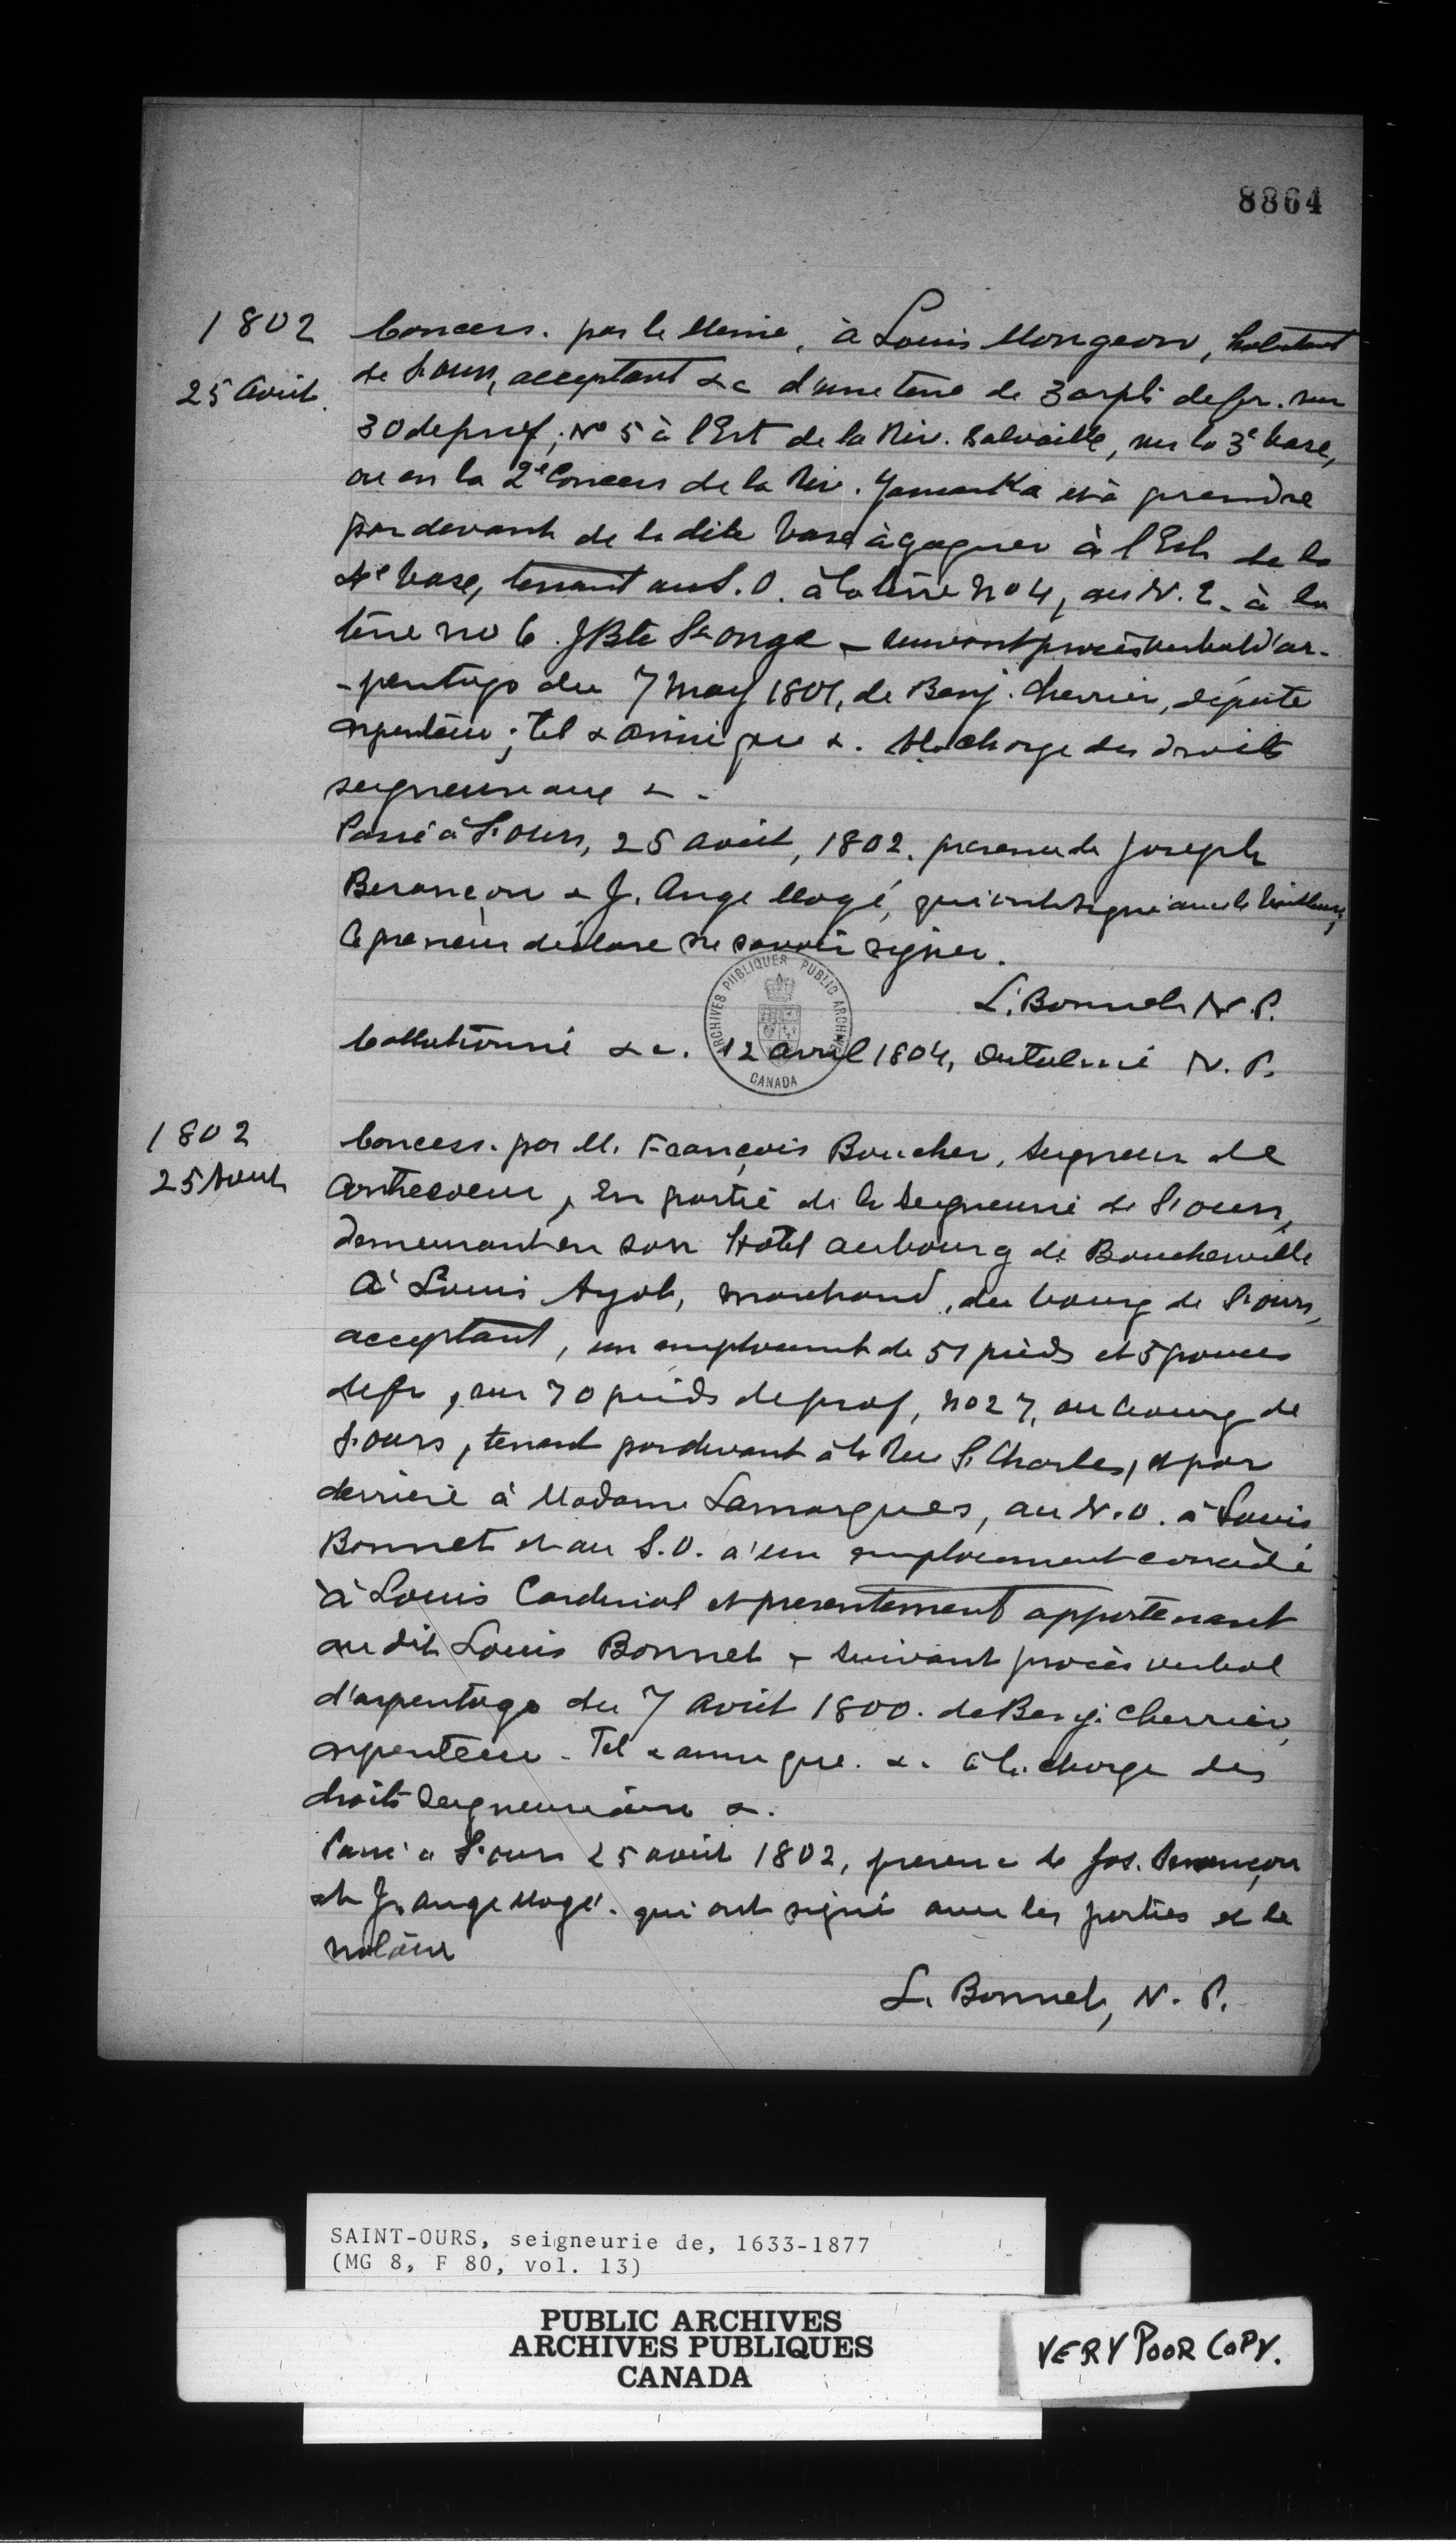 8864
1802
25 Août.
Concess. par le Même, à Louis Mongeon, habitant
de St ours, acceptant &c d'une terre de 3 arpts de fr. sur
30 de prof; No 5 à l'Est de la Riv. Salvaille, sur la 3e base,
ou en la 2e Concess de la Riv. Yamaska et à prendre
par devant de la dite base à gagner à l'Est de la
4e base, tenant au S.O. à la terre No 4, au N.E. à la
terre no 6 JBte St onge – suivant procès verbal d'ar-
-pentage du 7 May 1801, de Benj. Cherrier, député
arpenteur; tel & ainsi que &. à la charge des droits
seigneuriaux &.
Passé à St ours, 25 août, 1802. presence de Joseph
Besançon & J. Ange Mogé, qui ont signé avec le bailleur,
le preneur déclare ne savoir signer.
L. Bonnet N.P.
Collationné &c. 12 avril 1804, N.P.
ARCHIVES PUBLIQUES PUBLIC ARCHIVES
CANADA
1802
25 Aout
Concess. par M. François Boucher, Seigneur de
Contrecoeur, En partie de la Seigneurie de St ours,
demeurant en son Hotel au bourg de Boucherville
à Louis Ayot, marchand, du bourg de St ours,
acceptant, un emplacement de 51 pieds et 5 pouces
de fr, sur 70 pieds de prof, no 27, au bourg de
St ours, tenant par devant à la Rue St Charles, et par
derriere à Madame Lamarques, au N.O. à Louis
Bonnet et au S.O. a'un emplacement concédé
à Louis Cardinal et presentement appartenant
au dit Louis Bonnet – suivant procès verbal
d'arpentage du 7 Août 1800. de Benj. Cherrier,
arpenteur – Tel & ainsi que. &. à la charge des
droits Seigneuriaux &.
Passé a St ours 25 août 1802, presence de Jos. Besançon
et J. ange Mogé. qui ont signé avec les parties et le
notaire
L. Bonnet, N.P.
SAINT-OURS, seigneurie de, 1633-1877
(MG 8, F 80, vol. 13)
PUBLIC ARCHIVES
ARCHIVES PUBLIQUES
CANADA
VERY POOR COPY.